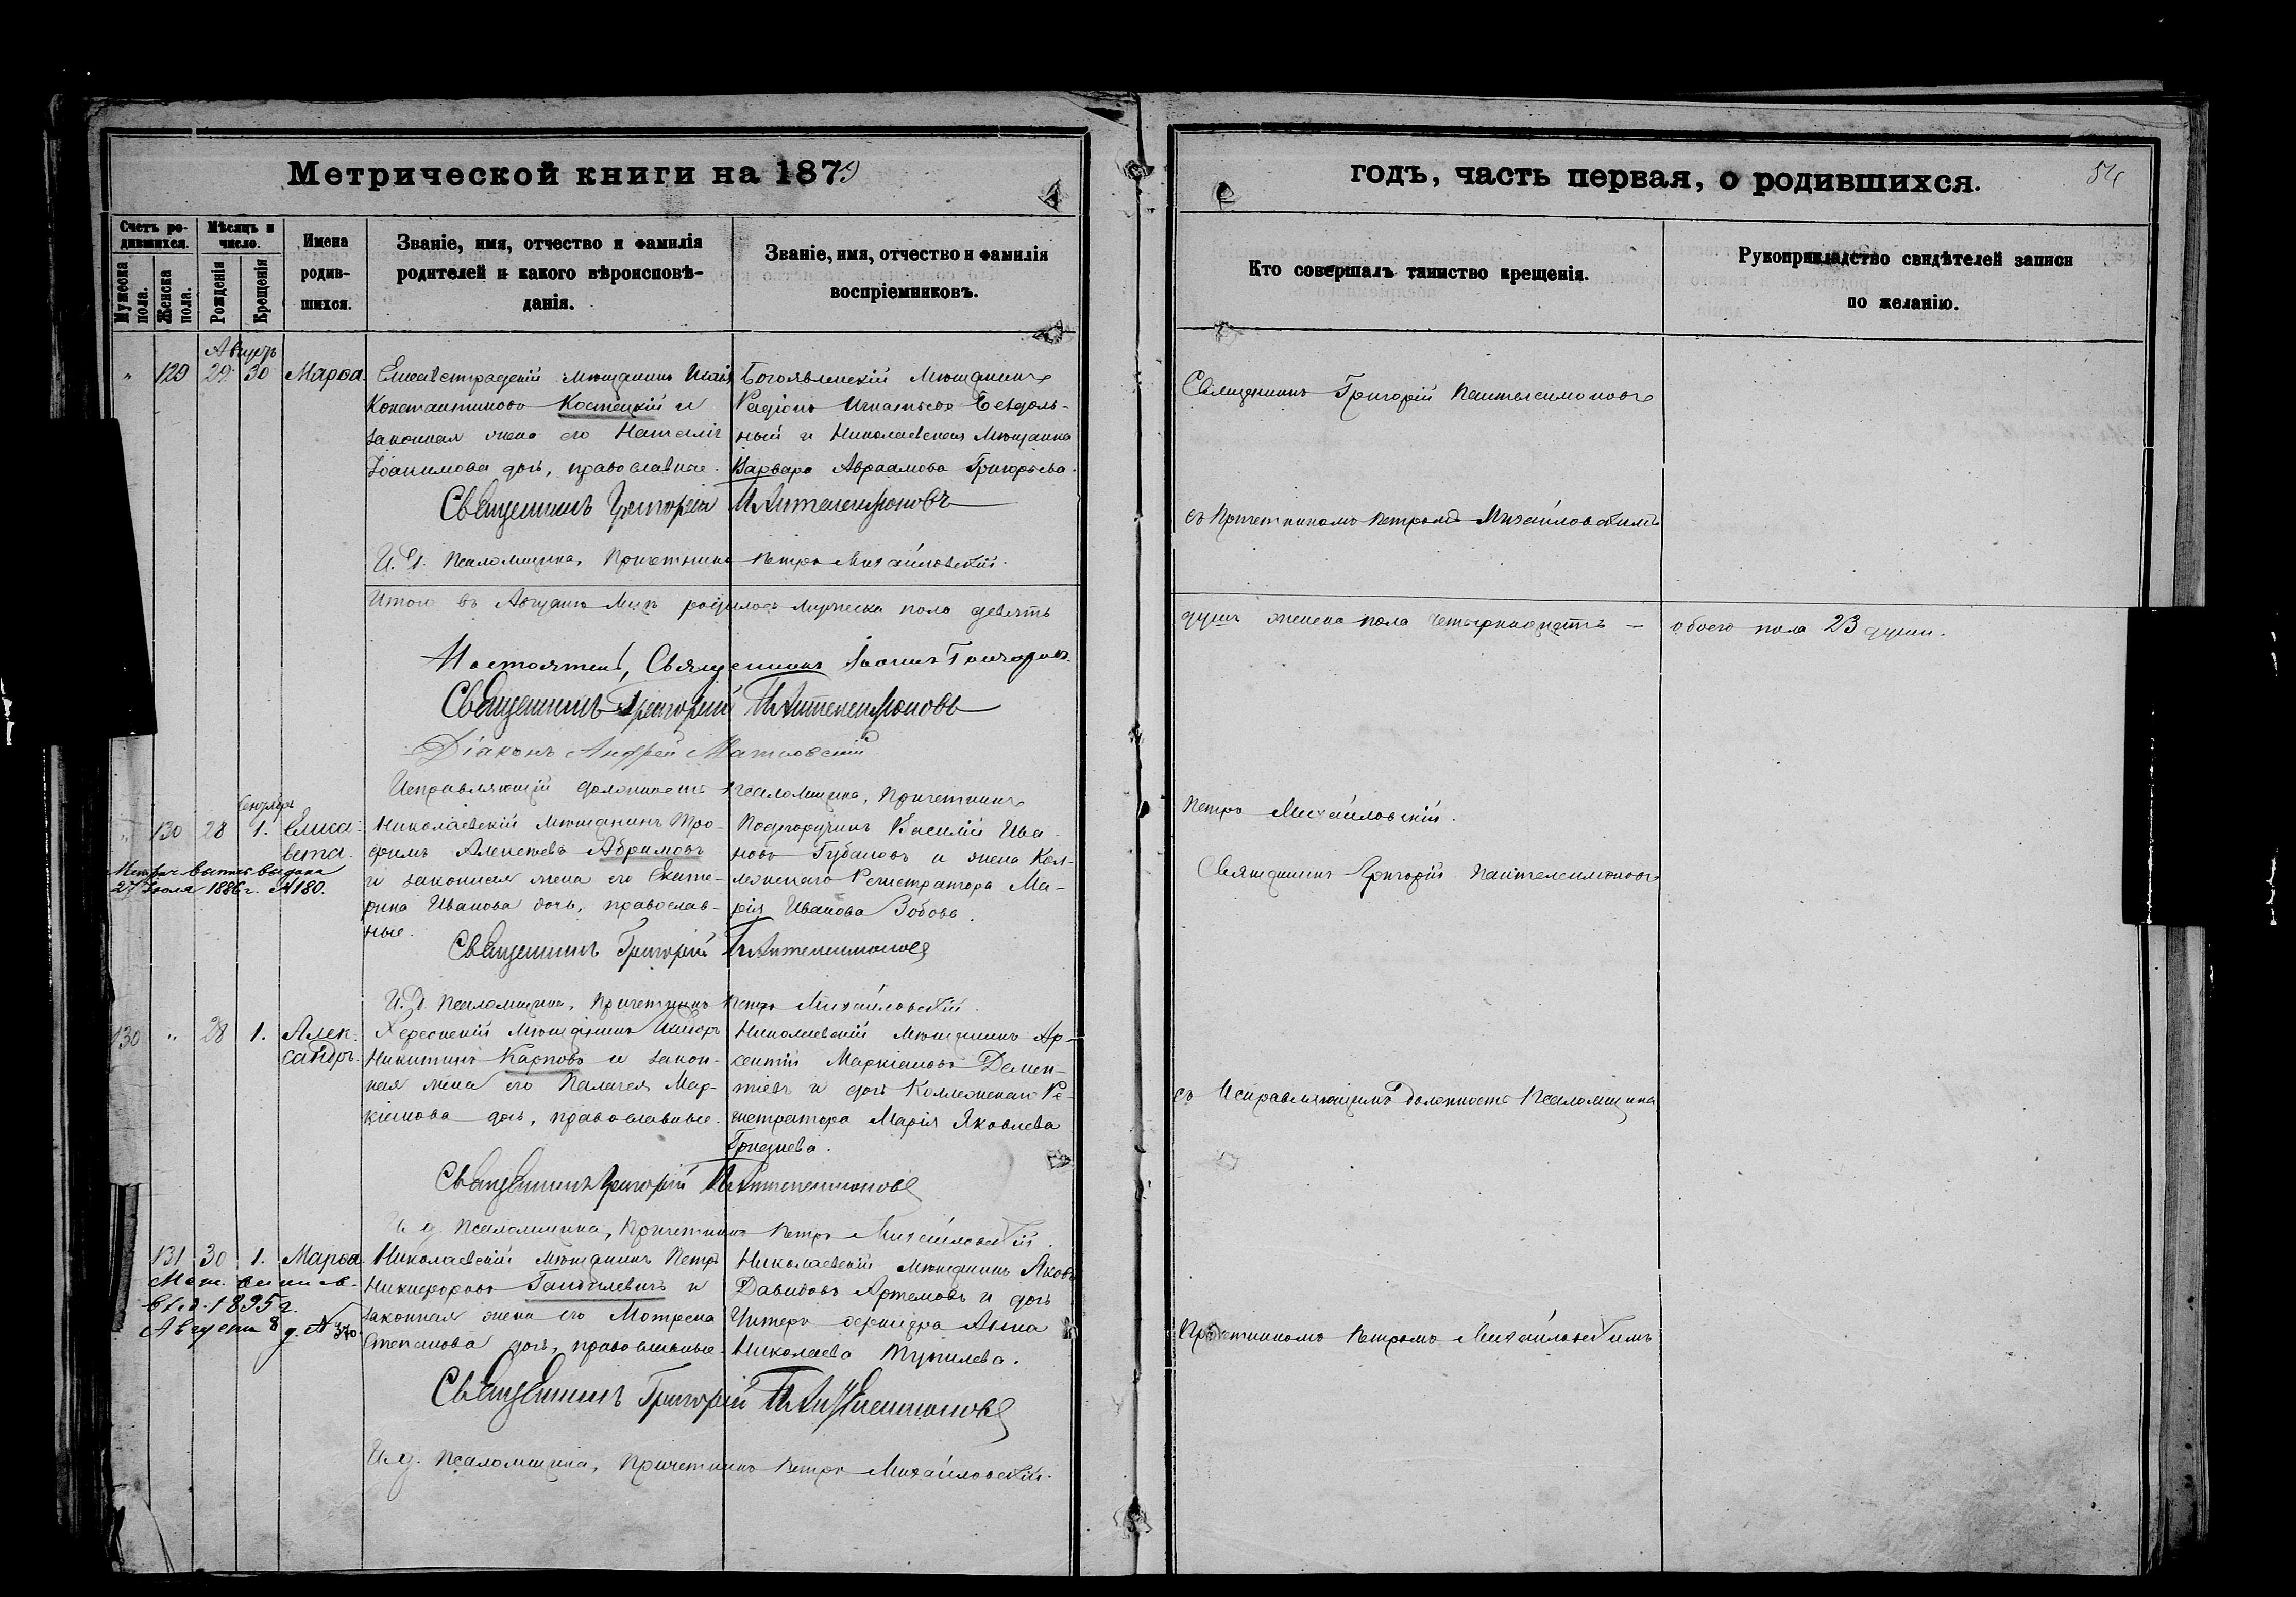 Метрической книги на 1879
годъ, часть первая, о родившихся.
54
Счетъ родившихся.
Мужеска пола.
Женска пола.
Мѣсяцъ и число.
Рожденія
Крещенія
Имена родив-
шихся.
Званіе, имя, отчество и фамилія
родителей и какого вѣроисповѣ-
данія.
Званіе, имя, отчество и фамилія
воспріемниковъ.
Кто совершалъ таинство крещенія.
Рукоприкладство свидѣтелей записи
по желанію.
Августъ
" 129 29 30 Марѳа.
Елисаветградскій мѣщанинъ
Константиновъ Костецкій и
законная жена его Наталія
Іоакимова дочь, православные.
Богоявленскій Мѣщанинъ
Родіонъ Игнатьевъ Бездоль-
ный и Николаевская Мѣщанка
Варвара Авраамова Григорьева.
Священникъ Григорій Пантелеимоновъ
Священникъ Григорій Пантелеимоновъ
съ Причетникомъ Петромъ Михайловскимъ
И. Д. Псаломщика, Причетникъ Петръ Михайловскій.
Итого въ Августѣ м-цѣ родилось мужеска пола девять
душъ женска пола четырнадцать — обоего пола 23 души.
Настоятель, Священникъ Іоаннъ
Священникъ Григорій Пантелеимоновъ
Діаконъ Андрей
Исправляющій должность псаломщика, Причетникъ
Петръ Михайловскій.
Сентябрь
" 130 28 1. Елиса-
вета.
Метрич. выпись выдана
27 Іюля 1886 г. № 180.
Николаевскій мѣщанинъ Тро-
фимъ Алексѣевъ Абрамовъ
и законная жена его Екате-
рина Иванова дочь, православ-
ные.
Подпоручикъ Василій Ива-
новъ Губановъ и жена Кол-
лежскаго Регистратора Ма-
рія Иванова Зобова.
Священникъ Григорій Пантелеимоновъ
Священникъ Григорій Пантелеимоновъ
И. Д. Псаломщика, Причетникъ Петръ Михайловскій.
130 " 28 1. Алек-
сандръ.
Херсонскій Мѣщанинъ
Никитинъ Карповъ и закон-
ная жена его Пелагея Мар-
кіанова дочь, православные.
Николаевскій Мѣщанинъ Ар-
сентій Маркіановъ Демен-
тіевъ и дочь Коллежскаго Ре-
гистратора Марія Яковлева
Гриднева.
съ Исправляющимъ должность Псаломщика
Священникъ Григорій Пантелеимоновъ
И. д. Псаломщика, Причетникъ Петръ Михайловскій.
131 30 1. Марѳа.
Мет. выпись
выд. 1895 г.
Августа 8 д. № 370
Николаевскій мѣщанинъ Петръ
Никифоровъ и
законная жена его Мотрона
Степанова дочь, православные.
Николаевскій мѣщанинъ Яковъ
Давидовъ Артемовъ и дочь
Унтеръ офицера Анна
Николаева
Причетникомъ Петромъ Михайловскимъ
Священникъ Григорій Пантелеимоновъ
И. д. Псаломщика, Причетникъ Петръ Михайловскій.